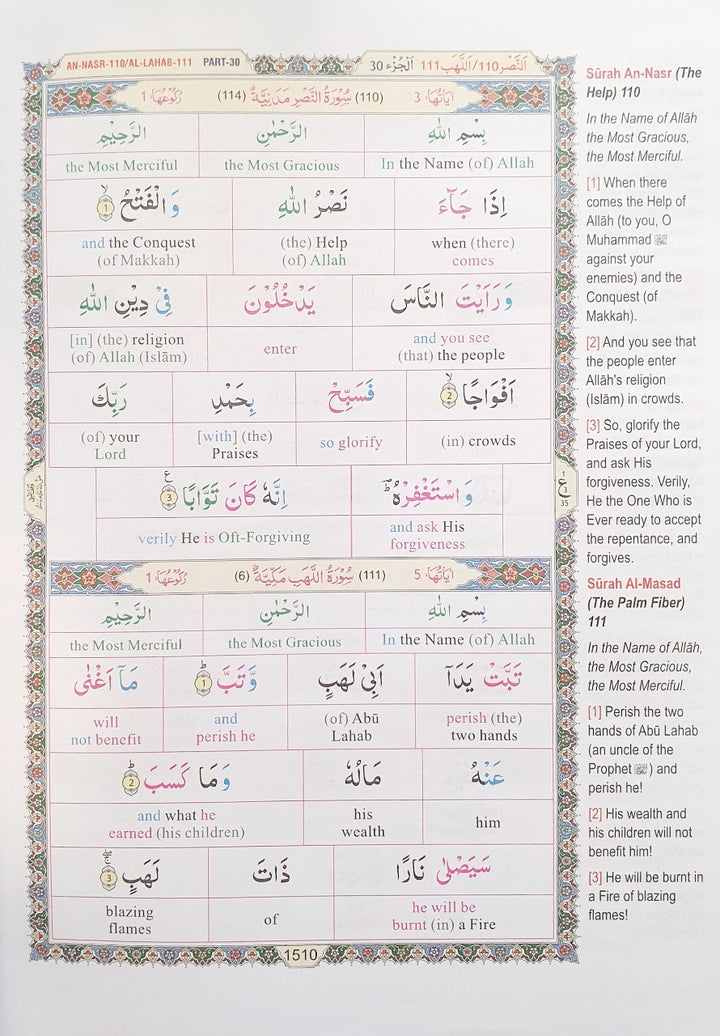 AN-NASR-110/AL-LAHAB-111 PART-30 اَلْجُزْء 30 اَلنَّصْر 110/اَللَّهَب 111
اٰيَاتُهَا 3 (110) سُوْرَةُ النَّصْرِ مَدَنِيَّةٌ (114) رُكُوْعُهَا 1
بِسْمِ اللّٰهِ الرَّحْمٰنِ الرَّحِيْمِ
In the Name (of) Allah the Most Gracious the Most Merciful
اِذَا جَآءَ نَصْرُ اللّٰهِ وَالْفَتْحُ ۙ 1
when (there) comes
(the) Help (of) Allah
and the Conquest (of Makkah)
وَرَاَيْتَ النَّاسَ يَدْخُلُوْنَ فِيْ دِيْنِ اللّٰهِ
and you see (that) the people
enter
[in] (the) religion (of) Allah (Islām)
اَفْوَاجًا ۙ 2 فَسَبِّحْ بِحَمْدِ رَبِّكَ
(in) crowds
so glorify
[with] (the) Praises
(of) your Lord
وَاسْتَغْفِرْهُ ؕ اِنَّهٗ كَانَ تَوَّابًا 3
and ask His forgiveness
verily He is Oft-Forgiving
اٰيَاتُهَا 5 (111) سُوْرَةُ اللَّهَبِ مَكِّيَّةٌ (6) رُكُوْعُهَا 1
بِسْمِ اللّٰهِ الرَّحْمٰنِ الرَّحِيْمِ
In the Name (of) Allah the Most Gracious the Most Merciful
تَبَّتْ يَدَآ اَبِيْ لَهَبٍ وَّتَبَّ ؕ 1 مَآ اَغْنٰى
perish (the) two hands
(of) Abū Lahab
and perish he
will not benefit
عَنْهُ مَالُهٗ وَمَا كَسَبَ ؕ 2
him
his wealth
and what he earned (his children)
سَيَصْلٰى نَارًا ذَاتَ لَهَبٍ 3
he will be burnt (in) a Fire
of
blazing flames
ع
35
1510
Sūrah An-Nasr (The
Help) 110
In the Name of Allāh
the Most Gracious,
the Most Merciful.
[1] When there
comes the Help of
Allāh (to you, O
Muhammad ﷺ
against your
enemies) and the
Conquest (of
Makkah).
[2] And you see that
the people enter
Allāh's religion
(Islām) in crowds.
[3] So, glorify the
Praises of your Lord,
and ask His
forgiveness. Verily,
He the One Who is
Ever ready to accept
the repentance, and
forgives.
Sūrah Al-Masad
(The Palm Fiber)
111
In the Name of Allāh,
the Most Gracious,
the Most Merciful.
[1] Perish the two
hands of Abū Lahab
(an uncle of the
Prophet ﷺ) and
perish he!
[2] His wealth and
his children will not
benefit him!
[3] He will be burnt in
a Fire of blazing
flames!